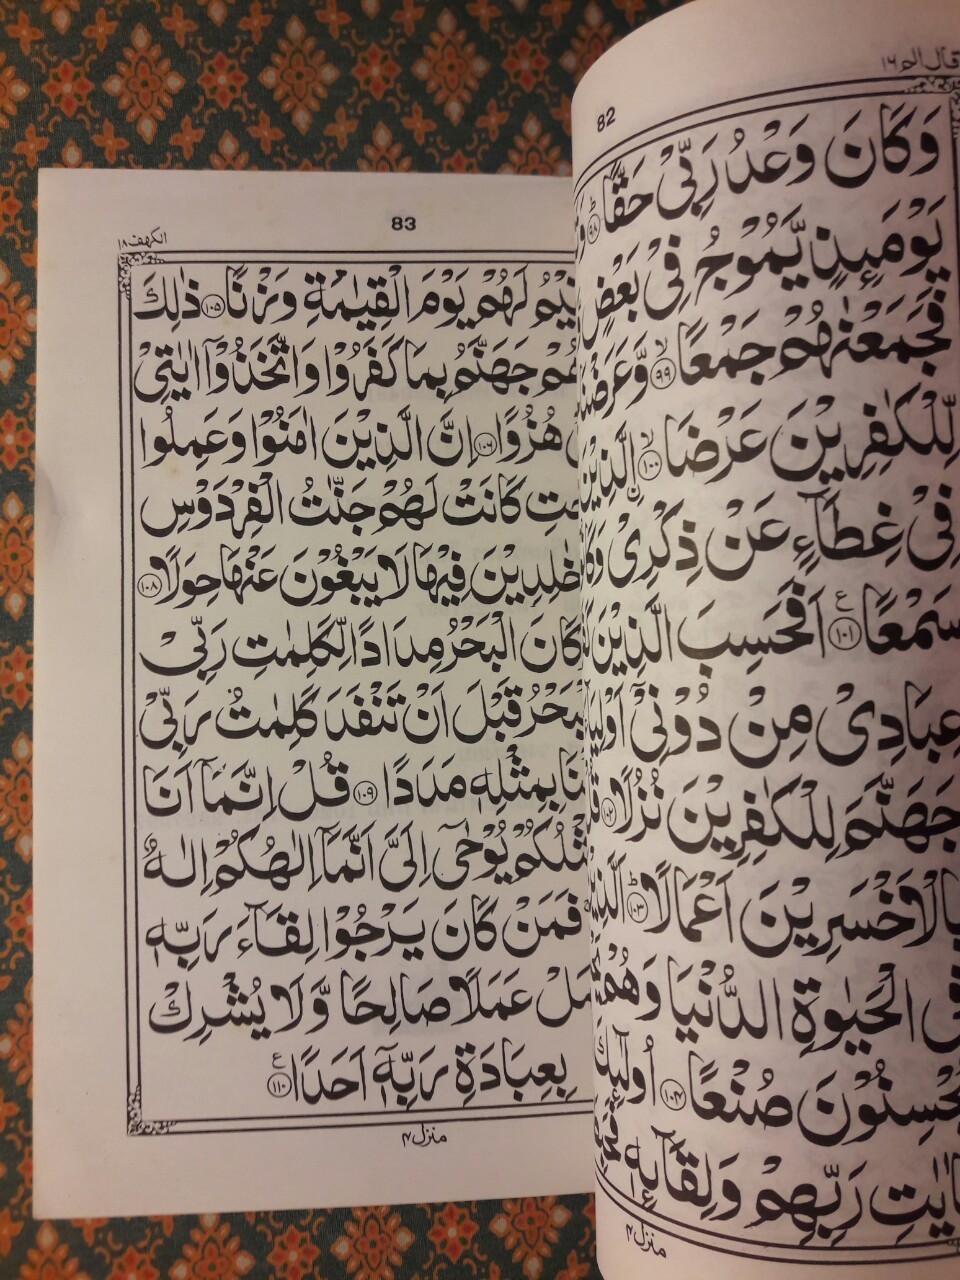 قال الم ١٦
82
وَكَانَ وَعْدُ رَبِّىْ حَقًّا ۹۸
يَوْمَىِٕذٍ يَّمُوْجُ فِىْ بَعْضٍ
فَجَمَعْنٰهُمْ جَمْعًا ۹۹ وَّعَرَضْنَا
لِّلْكٰفِرِيْنَ عَرْضَا ۱۰۰ ۨالَّذِيْنَ
فِىْ غِطَآءٍ عَنْ ذِكْرِىْ
سَمْعًا ۱۰۱ اَفَحَسِبَ الَّذِيْنَ
عِبَادِىْ مِنْ دُوْنِىْٓ
جَهَنَّمَ لِلْكٰفِرِيْنَ نُزُلًا ۱۰۲
بِالْاَخْسَرِيْنَ اَعْمَالًا ۱۰۳
الْحَيٰوةِ الدُّنْيَا وَهُمْ
صُنْعًا ۱۰۴ اُولٰٓىِٕكَ
رَبِّهِمْ وَلِقَآىِٕهٖ
منزل ۴
83
الكهف ۱۸
لَهُمْ يَوْمَ الْقِيٰمَةِ وَزْنًا ۱۰۵ ذٰلِكَ
جَهَنَّمُ بِمَا كَفَرُوْا وَاتَّخَذُوْٓا اٰيٰتِىْ
هُزُوًا ۱۰۶ اِنَّ الَّذِيْنَ اٰمَنُوْا وَعَمِلُوا
كَانَتْ لَهُمْ جَنّٰتُ الْفِرْدَوْسِ
خٰلِدِيْنَ فِيْهَا لَا يَبْغُوْنَ عَنْهَا حِوَلًا ۱۰۸
كَانَ الْبَحْرُ مِدَادًا لِّكَلِمٰتِ رَبِّىْ
قَبْلَ اَنْ تَنْفَدَ كَلِمٰتُ رَبِّىْ
بِمِثْلِهٖ مَدَدًا ۱۰۹ قُلْ اِنَّمَآ اَنَا
يُوْحٰٓى اِلَىَّ اَنَّمَآ اِلٰهُكُمْ اِلٰهٌ
فَمَنْ كَانَ يَرْجُوْا لِقَآءَ رَبِّهٖ
عَمَلًا صَالِحًا وَّلَا يُشْرِكْ
بِعِبَادَةِ رَبِّهٖٓ اَحَدًا ۱۱۰ ع
منزل ۴